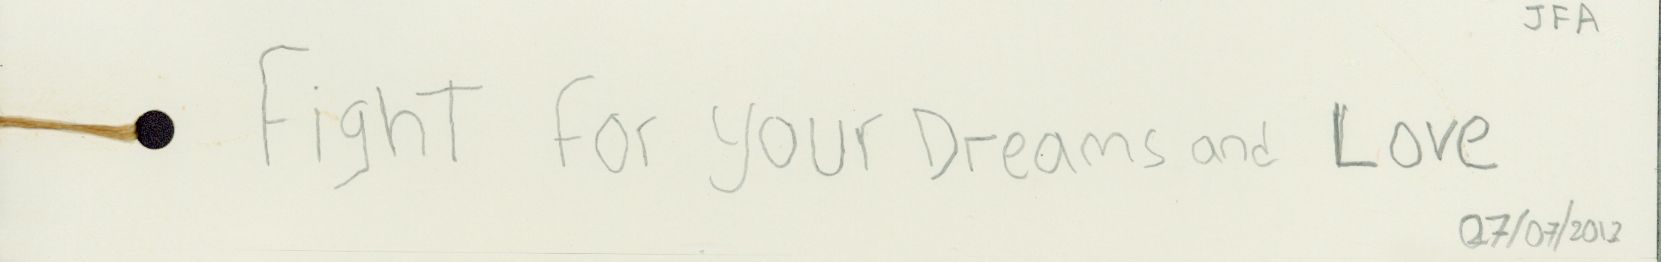 JFA
FighT for your Dreams and Love
07/07/2012